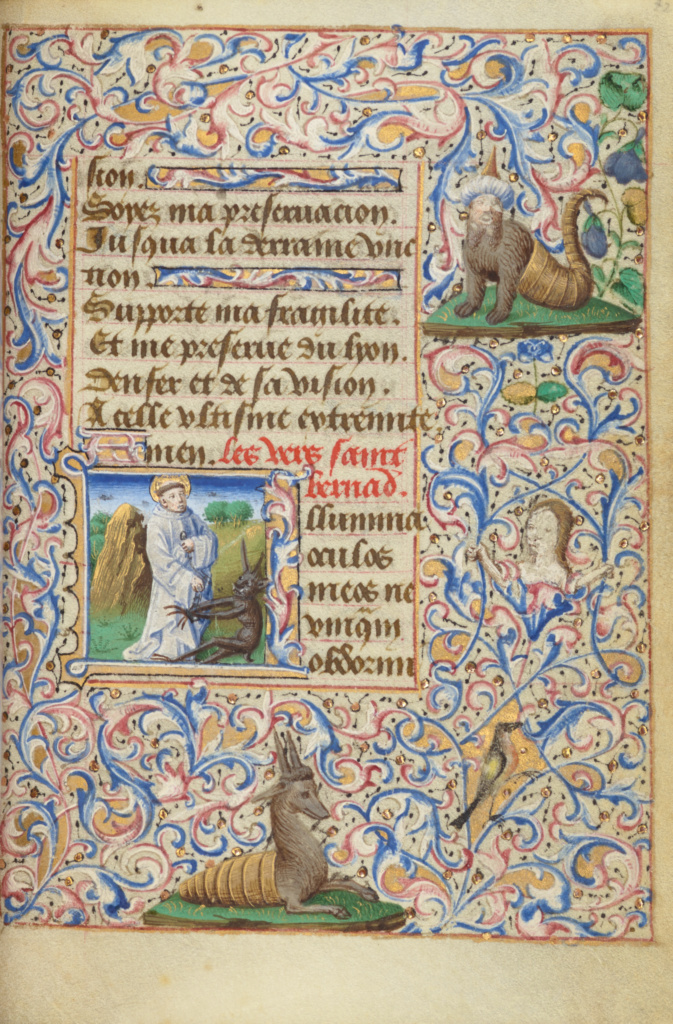 scon.
Soyez ma preseruacion.
Jusqua la derraine vnc
tion
Supporte ma fragilite.
Et me preserue du lyon.
Denfer et de sa vision.
A celle vltisme extremite
Amen. Les vers saint
bernad.
Illumina
oculos
meos ne
vmq̃m
obdormi